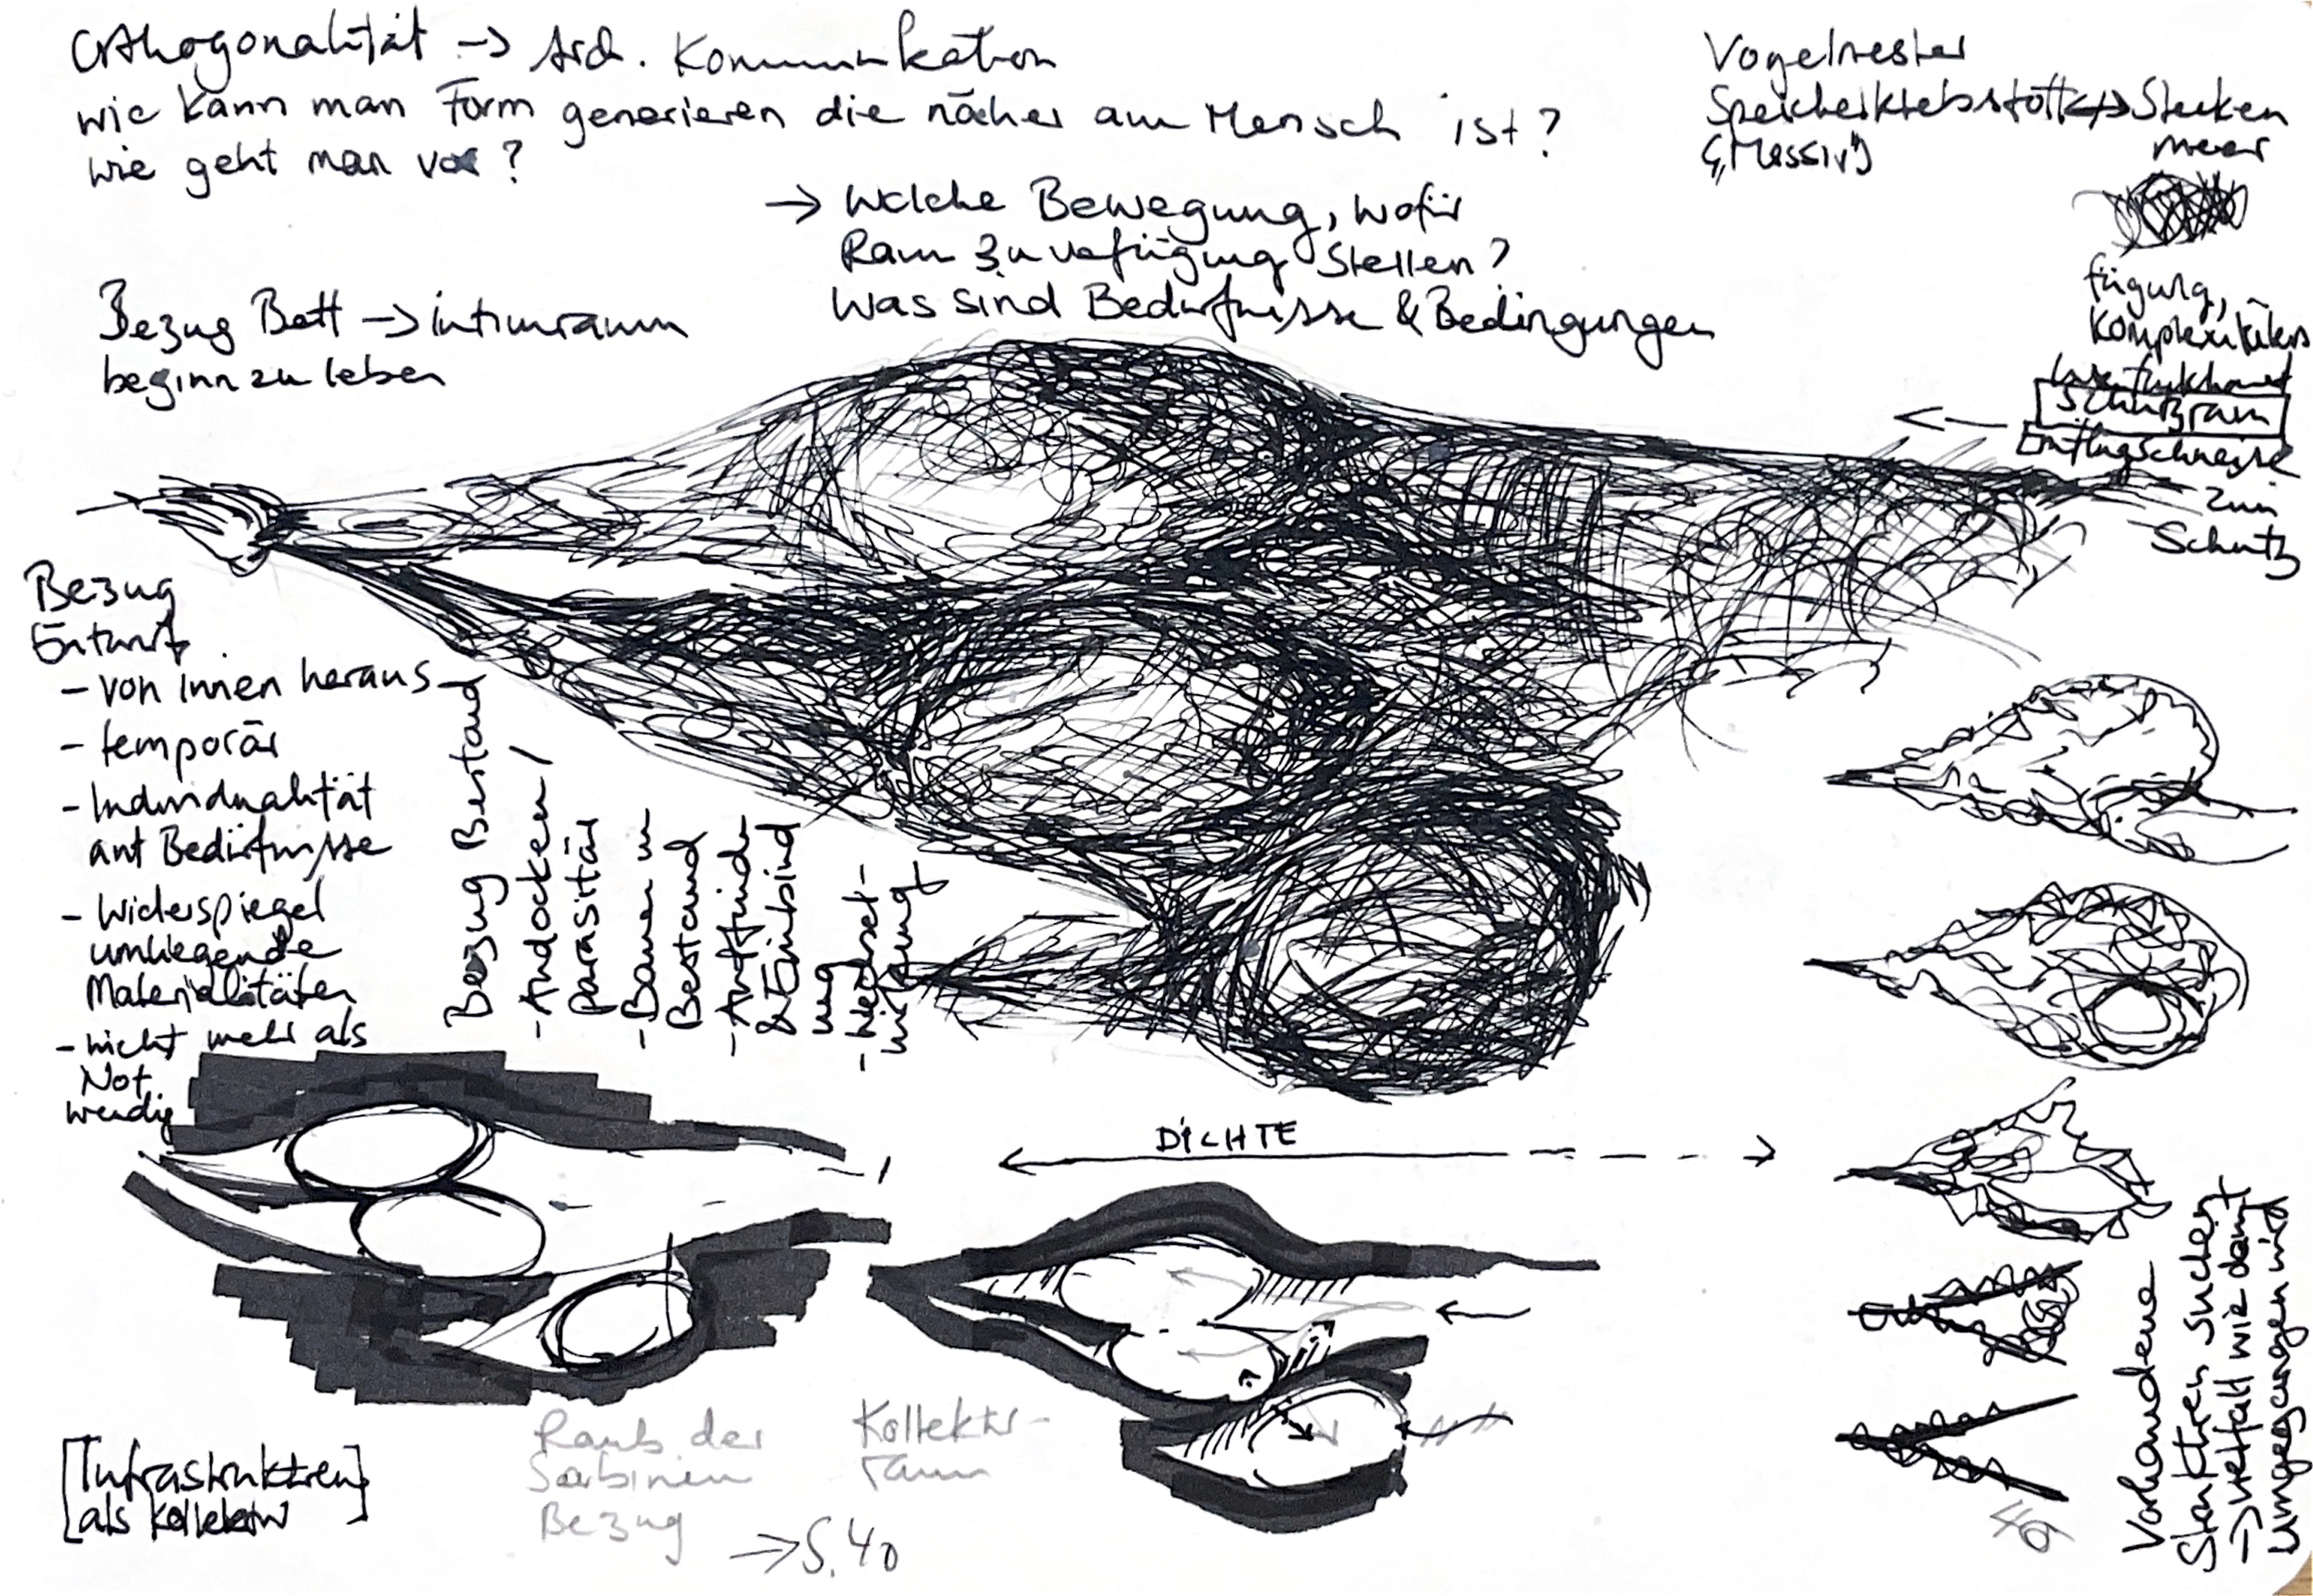 Orthogonalität -> Arch. Kommunikation
wie kann man Form generieren die näher am Mensch ist?
wie geht man vor?
-> Welche Bewegung, wofür
Raum zu verfügung stellen?
Was sind Bedürfnisse & Bedingungen
Bezug Bett -> intimraum
beginn zu leben
Vogelnester
Speichelklebstoff <-> Stecken
(Massiv)
meer
fügung,
Komplexität
Schutzraum
Einflugschneise
zum
Schutz
Bezug
Entwurf
- von Innen heraus
- temporär
- Individualität
auf Bedürfnisse
- Widerspiegel
umliegende
Materialitäten
- nicht mehr als
Not
wendig
Bezug Bestand
- Andocken/
parasitär
- Bauen im
Bestand
- Auffinden
& Einbind
ung
- Wechsel-
wirkung
DICHTE
[Infrastrukturen]
als Kollektiv
Raub der
Sabinerinnen
Bezug
-> S. 40
Kollektiv-
raum
Vorhandene
Strukturen suchen
-> Vielfalt wie damit
umgegangen wird
49